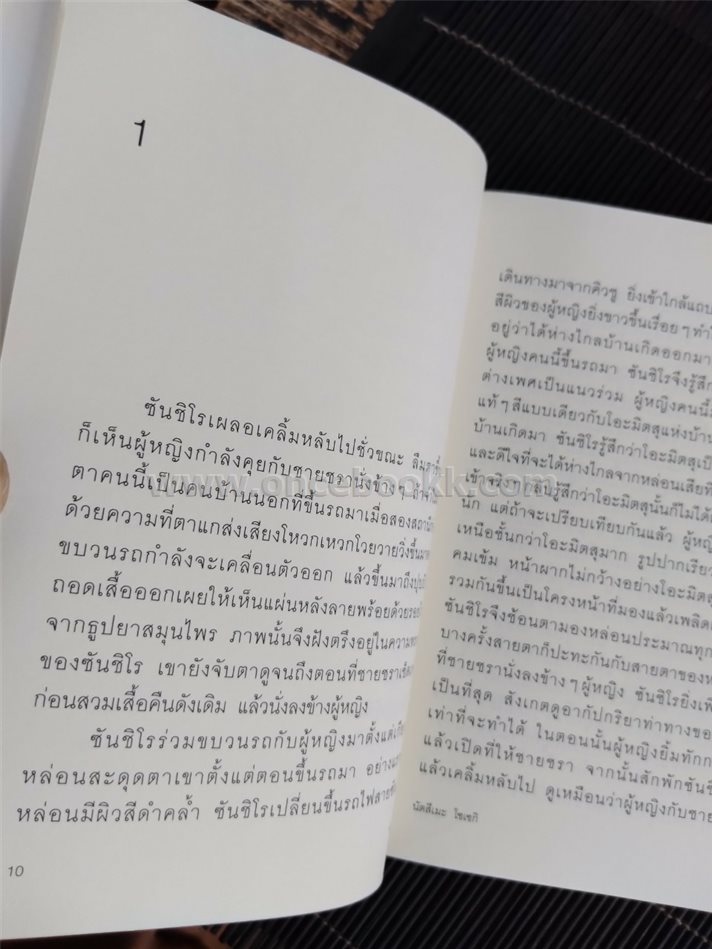 1
ซันชิโรเผลอเคลิ้มหลับไปชั่วขณะ ลืมตา
ก็เห็นผู้หญิงกำลังคุยกับชายชรานั่งข้างๆ
ตาคนนี้เป็นคนบ้านนอกที่ขึ้นรถมาเมื่อสองสถานี
ด้วยความที่ตาแกส่งเสียงโหวกเหวกโวยวายวิ่งขึ้นมา
ขบวนรถกำลังจะเคลื่อนตัวออก แล้วขึ้นมาถึงปุบปับ
ถอดเสื้อออกเผยให้เห็นแผ่นหลังลายพร้อยด้วยรอย
จากธูปยาสมุนไพร ภาพนั้นจึงฝังตรึงอยู่ในความ
ของซันชิโร เขายังจับตาดูจนถึงตอนที่ชายชราเช็ด
ก่อนสวมเสื้อคืนดังเดิม แล้วนั่งลงข้างผู้หญิง
ซันชิโรร่วมขบวนรถกับผู้หญิงมาตั้งแต่เกียว
หล่อนสะดุดตาเขาตั้งแต่ตอนขึ้นรถมา อย่าง
หล่อนมีผิวสีดำคล้ำ ซันชิโรเปลี่ยนขึ้นรถไฟสาย
10
เดินทางมาจากคิวชู ยิ่งเข้าใกล้แถบ
สีผิวของผู้หญิงยิ่งขาวขึ้นเรื่อยๆ ทำ
อยู่ว่าได้ห่างไกลบ้านเกิดออกมา
ผู้หญิงคนนี้ขึ้นรถมา ซันชิโรจึงรู้สึก
ต่างเพศเป็นแนวร่วม ผู้หญิงคนนี้
แท้ๆ สีแบบเดียวกับโอะมิตสุแห่งบ้าน
บ้านเกิดมา ซันชิโรรู้สึกว่าโอะมิตสุเป็น
และดีใจที่จะได้ห่างไกลจากหล่อนเสียที
เข้าจริงๆ รู้สึกว่าโอะมิตสุนั้นก็ไม่ได้
นัก แต่ถ้าจะเปรียบเทียบกันแล้ว ผู้หญิง
เหนือชั้นกว่าโอะมิตสุมาก รูปปากเรียว
คมเข้ม หน้าผากไม่กว้างอย่างโอะมิตสุ
รวมกันขึ้นเป็นโครงหน้าที่มองแล้วเพลิด
ซันชิโรจึงช้อนตามองหล่อนประมาณทุก
บางครั้งสายตาก็ปะทะกันกับสายตาของ
ที่ชายชรานั่งลงข้างๆ ผู้หญิง ซันชิโรยิ่ง
เป็นที่สุด สังเกตดูอากัปกริยาท่าทางของ
เท่าที่จะทำได้ ในตอนนั้นผู้หญิงยิ้มทัก
แล้วเปิดที่ให้ชายชรา จากนั้นสักพักซันชิ
แล้วเคลิ้มหลับไป ดูเหมือนว่าผู้หญิงกับชาย
นัตสึเมะ โซเซกิ
www.oncebookk.com